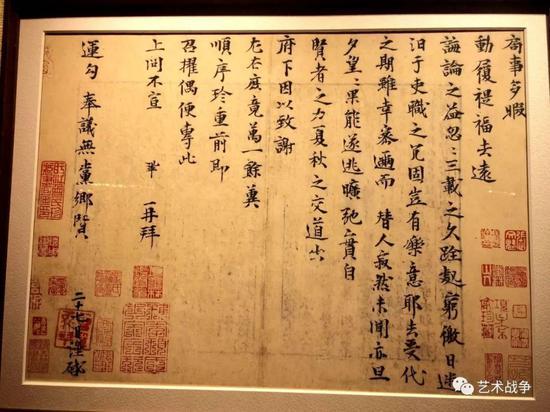 局事多暇
動履禔福去遠
誨論之益忽〻三載之久跧處窮徼日迷
汨于吏職之冗固豈有樂意耶去受代
之期雖幸密邇而 替人寂然未聞亦旦
夕望〻果能遂逃曠弛實自
賢者之力夏秋之交道出
府下因以致謝
左右庶竟萬一餘冀
順序珍重前即
召擢偶便專此
上問不宣 鞏 再拜
運勾奉議無黨鄉賢
二十七日謹啟
艺术战争